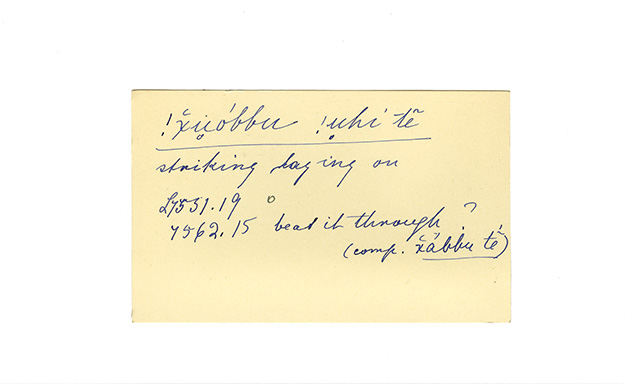 !x̌u̯óbbu !u̯hí tẽ
striking laying on
L4531.19
4562.15 beat it through ?
(comp. x̌ãbbu tẽ)